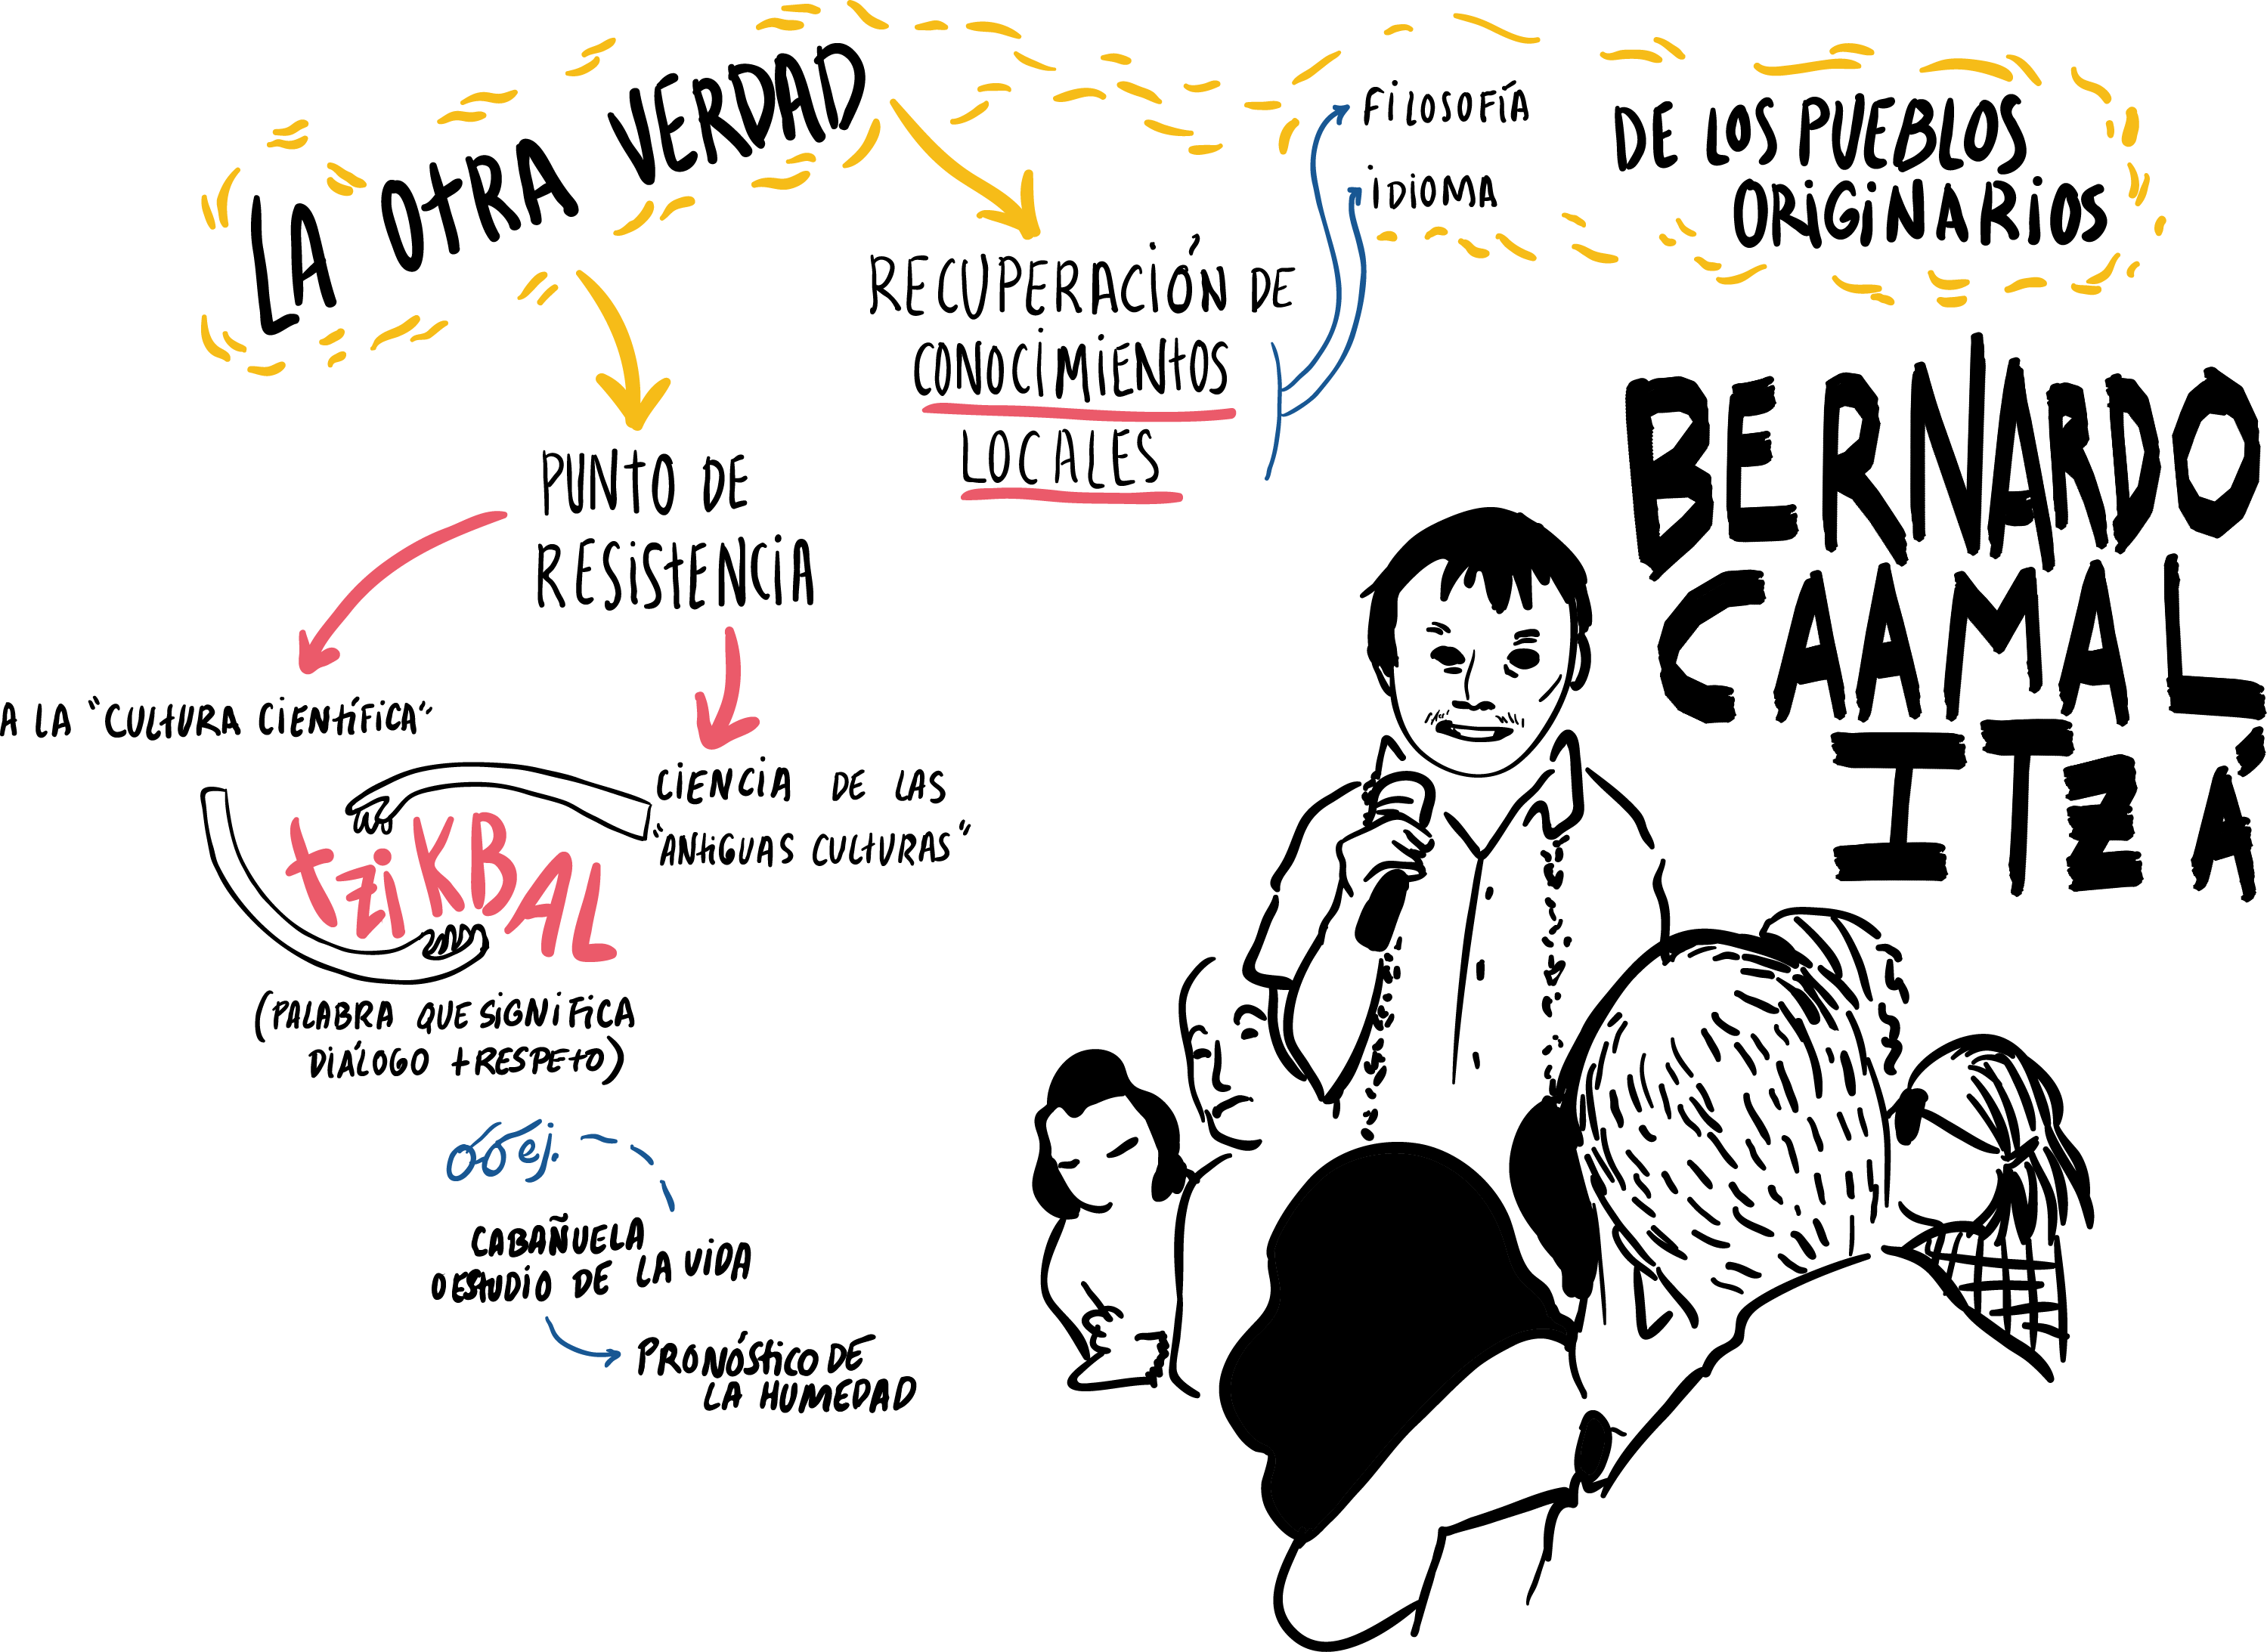 LA OTRA VERDAD
DE LOS PUEBLOS
ORIGINARIOS
FILOSOFÍA
IDIOMA
RECUPERACIÓN DE
CONOCIMIENTOS
LOCALES
PUNTO DE
RESISTENCIA
A LA "CULTURA CIENTÍFICA"
CIENCIA DE LAS
"ANTIGUAS CULTURAS"
TZIKBAL
(PALABRA QUE SIGNIFICA
DIÁLOGO + RESPETO)
ej.
CABAÑUELA
O ESTUDIO DE LA VIDA
PRONÓSTICO DE
LA HUMEDAD
BERNARDO
CAAMAL
ITZÁ